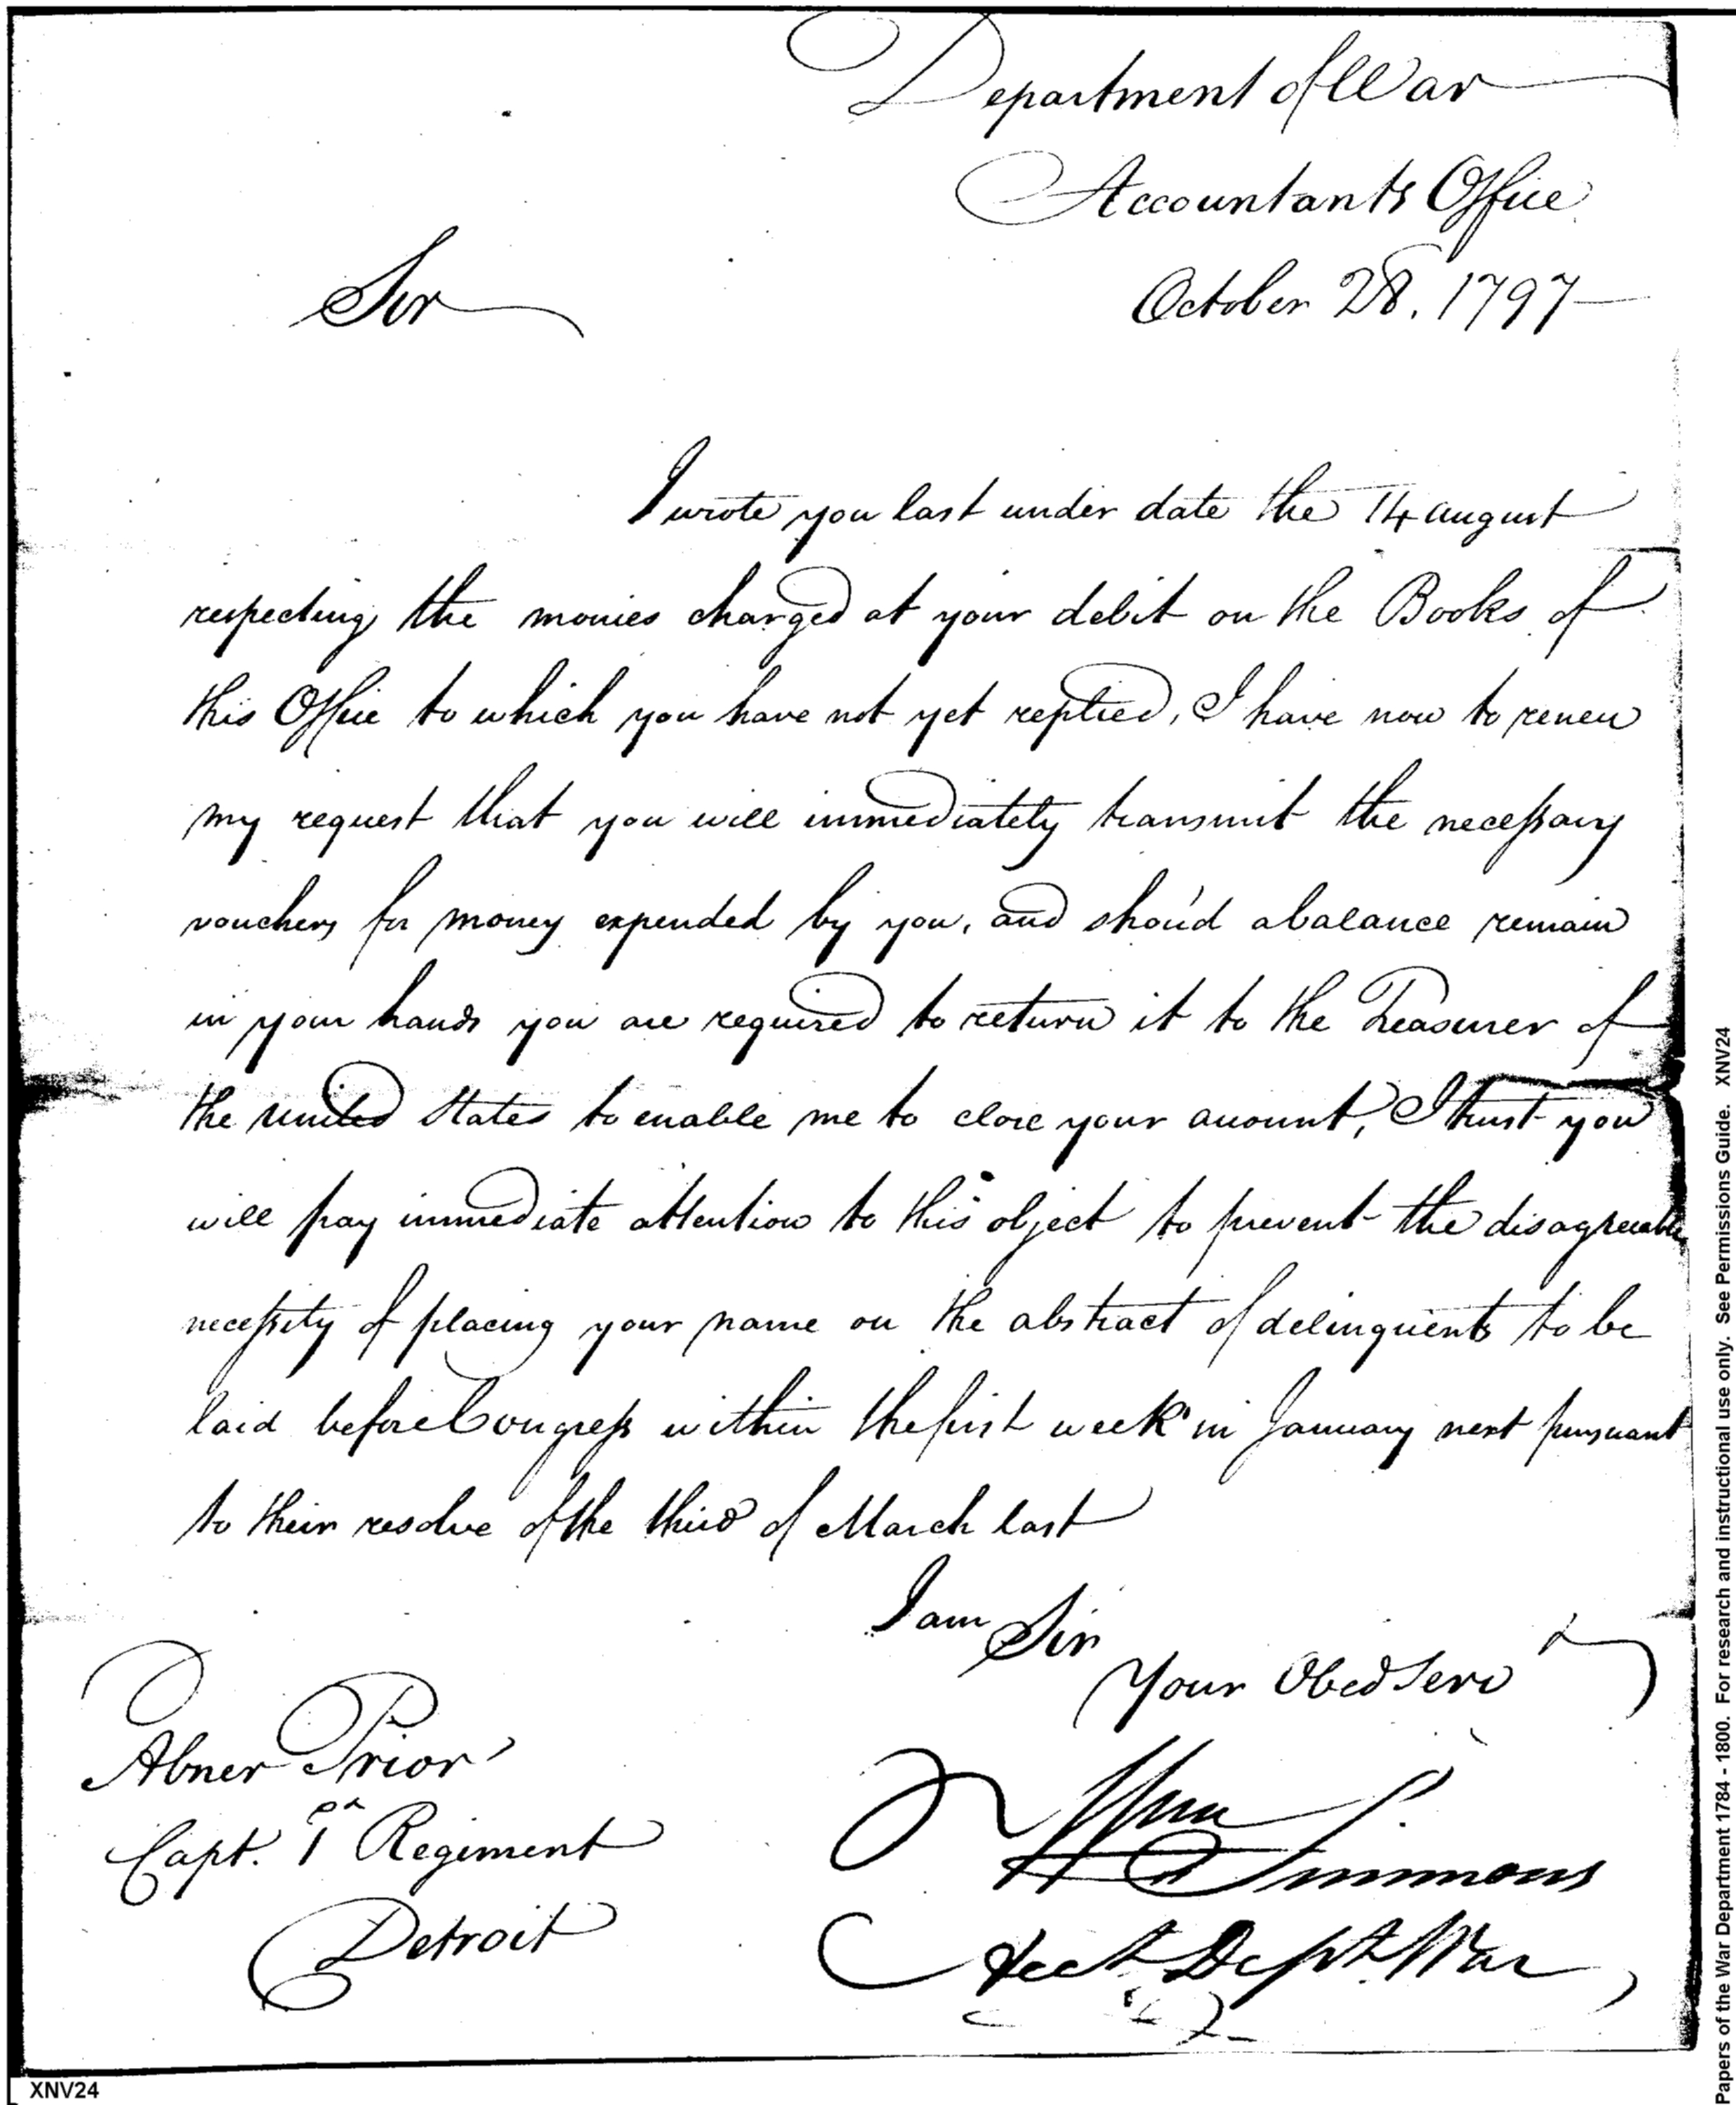 Department of War
Accountants Office
October 28. 1797
Sir
I wrote you last under date the 14 august
respecting the monies charged at your debit on the Books of
this Office to which you have not yet replied, I have now to renew
my request that you will immediately transmit the necessary
vouchers for money expended by you, and shou'd a balance remain
in your hands you are required to return it to the Treasurer of
the united States to enable me to close your account, I trust you
will pay immediate attention to this object to prevent the disagreeable
necessity of placing your name on the abstract of delinquents to be
laid before Congress within the first week in January next pursuant
to their resolve of the third of March last
I am Sir
Your Obed Serv t
Abner Prior
Capt. 1 st Regiment
Detroit
Wm Simmons
Acct Dept War
XNV24
Papers of the War Department 1784 - 1800. For research and instructional use only. See Permissions Guide. XNV24